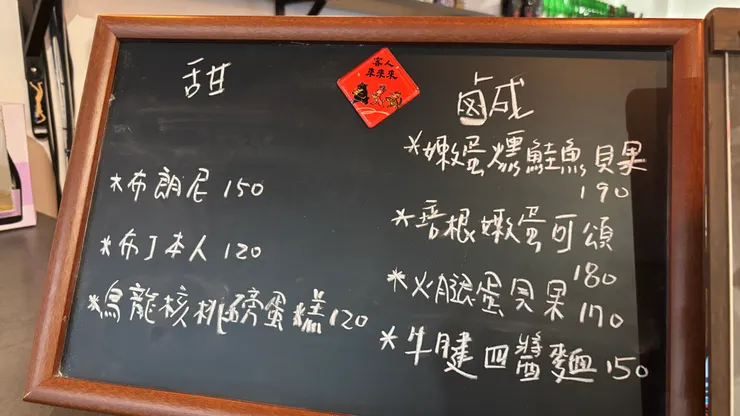 甜
*布朗尼 150
*布丁本人 120
*烏龍核桃磅蛋糕 120
客人
來來來
鹹
*嫩蛋燻鮭魚貝果
190
*培根嫩蛋可頌
180
*火腿蛋貝果 170
*牛腱四醬麵 150